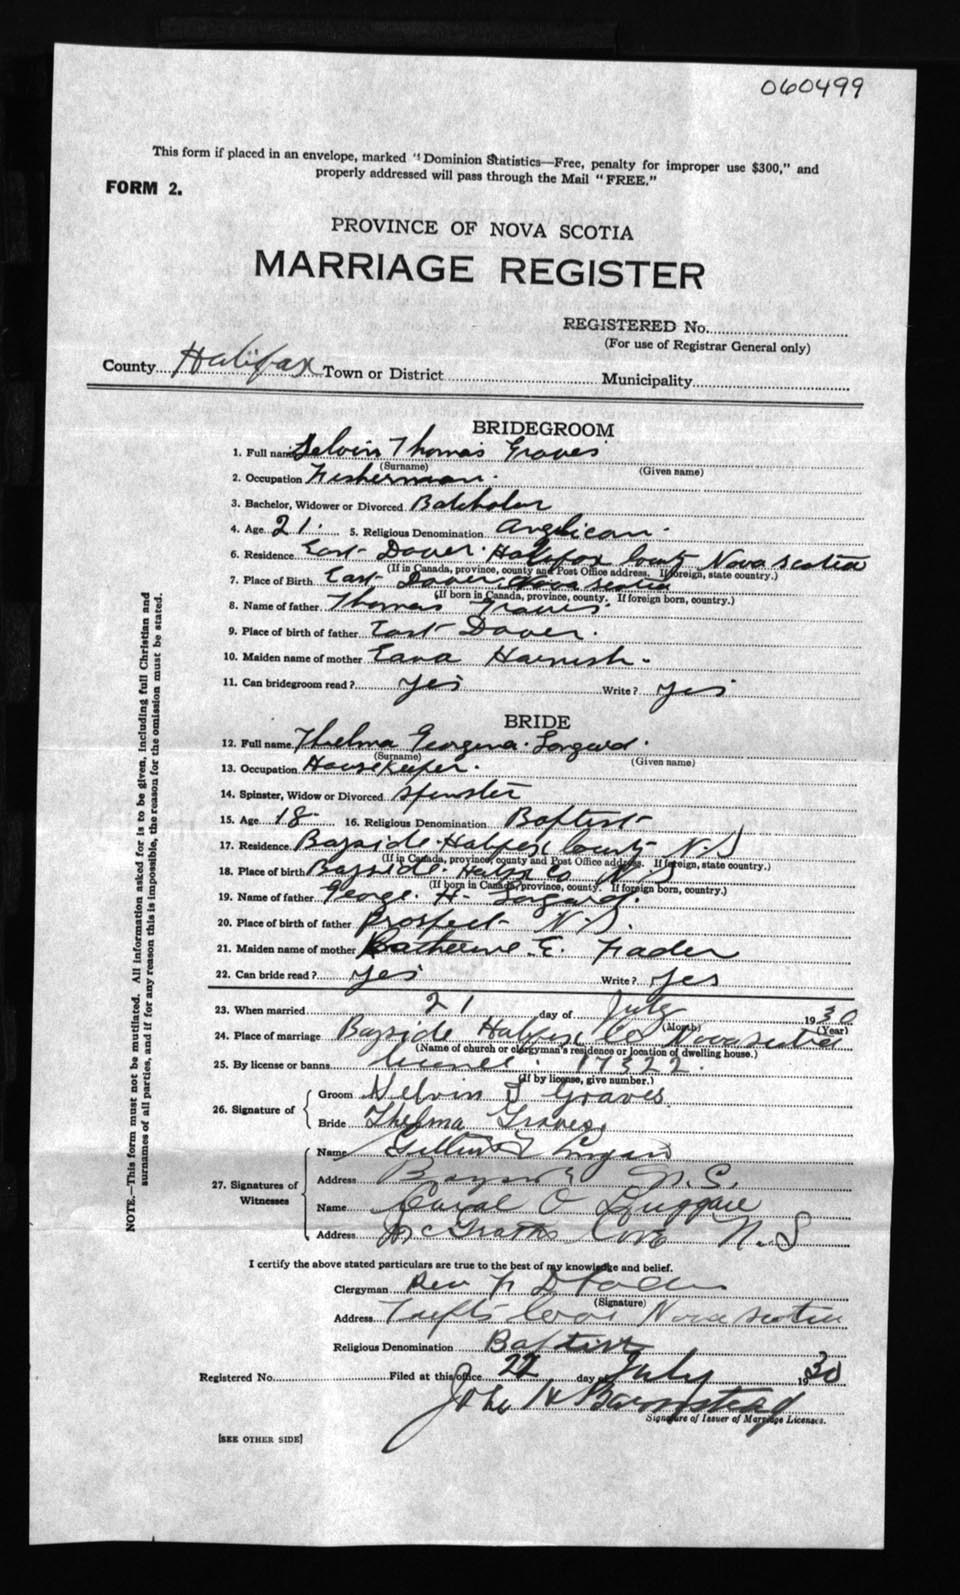 060499
This form if placed in an envelope, marked "Dominion Statistics—Free, penalty for improper use $300," and
properly addressed will pass through the Mail "FREE."
FORM 2.
PROVINCE OF NOVA SCOTIA
MARRIAGE REGISTER
REGISTERED No.
(For use of Registrar General only)
County Halifax Town or District Municipality
BRIDEGROOM
1. Full name Thomas Graves
(Surname) (Given name)
2. Occupation Fisherman.
3. Bachelor, Widower or Divorced Batchelor
4. Age 21. 5. Religious Denomination Anglican.
6. Residence East Dover. Halifax County Nova scotia
(If in Canada, province, county and Post Office address. If foreign, state country.)
7. Place of Birth East Dover Nova scotia
(If born in Canada, province, county. If foreign born, country.)
8. Name of father Thomas Graves.
9. Place of birth of father East Dover.
10. Maiden name of mother Harnish.
11. Can bridegroom read? yes Write? yes
BRIDE
12. Full name Thelma Georgena.
(Surname) (Given name)
13. Occupation Housekeeper.
14. Spinster, Widow or Divorced spinster
15. Age 18 16. Religious Denomination Baptist
17. Residence Bayside. Halifax County N.S
(If in Canada, province, county and Post Office address. If foreign, state country.)
18. Place of birth Bayside. Halifax Co N.S
(If born in Canada, province, county. If foreign born, country.)
19. Name of father George. H.
20. Place of birth of father Prospect N.S.
21. Maiden name of mother Katherine E. Fader
22. Can bride read? yes Write? yes
23. When married 21 day of July 1930
(Month) (Year)
24. Place of marriage Bayside Halifax Co Nova scotia
(Name of church or clergyman's residence or location of dwelling house.)
25. By license or banns 17322.
(If by license, give number.)
26. Signature of
Groom Graves
Bride Thelma Graves
27. Signatures of
Witnesses
Name
Address N.S.
Name O
Address McGraths Cove N.S
I certify the above stated particulars are true to the best of my knowledge and belief.
Clergyman Rev
(Signature)
Address Tufts Cove Nova scotia
Religious Denomination Baptist
Registered No. Filed at this office 22 day of July 1930
John H Barnstead
Signature of Issuer of Marriage Licenses.
[SEE OTHER SIDE]
NOTE.—This form must not be mutilated. All information asked for is to be given, including full Christian and
surnames of all parties, and if for any reason this is impossible, the reason for the omission must be stated.